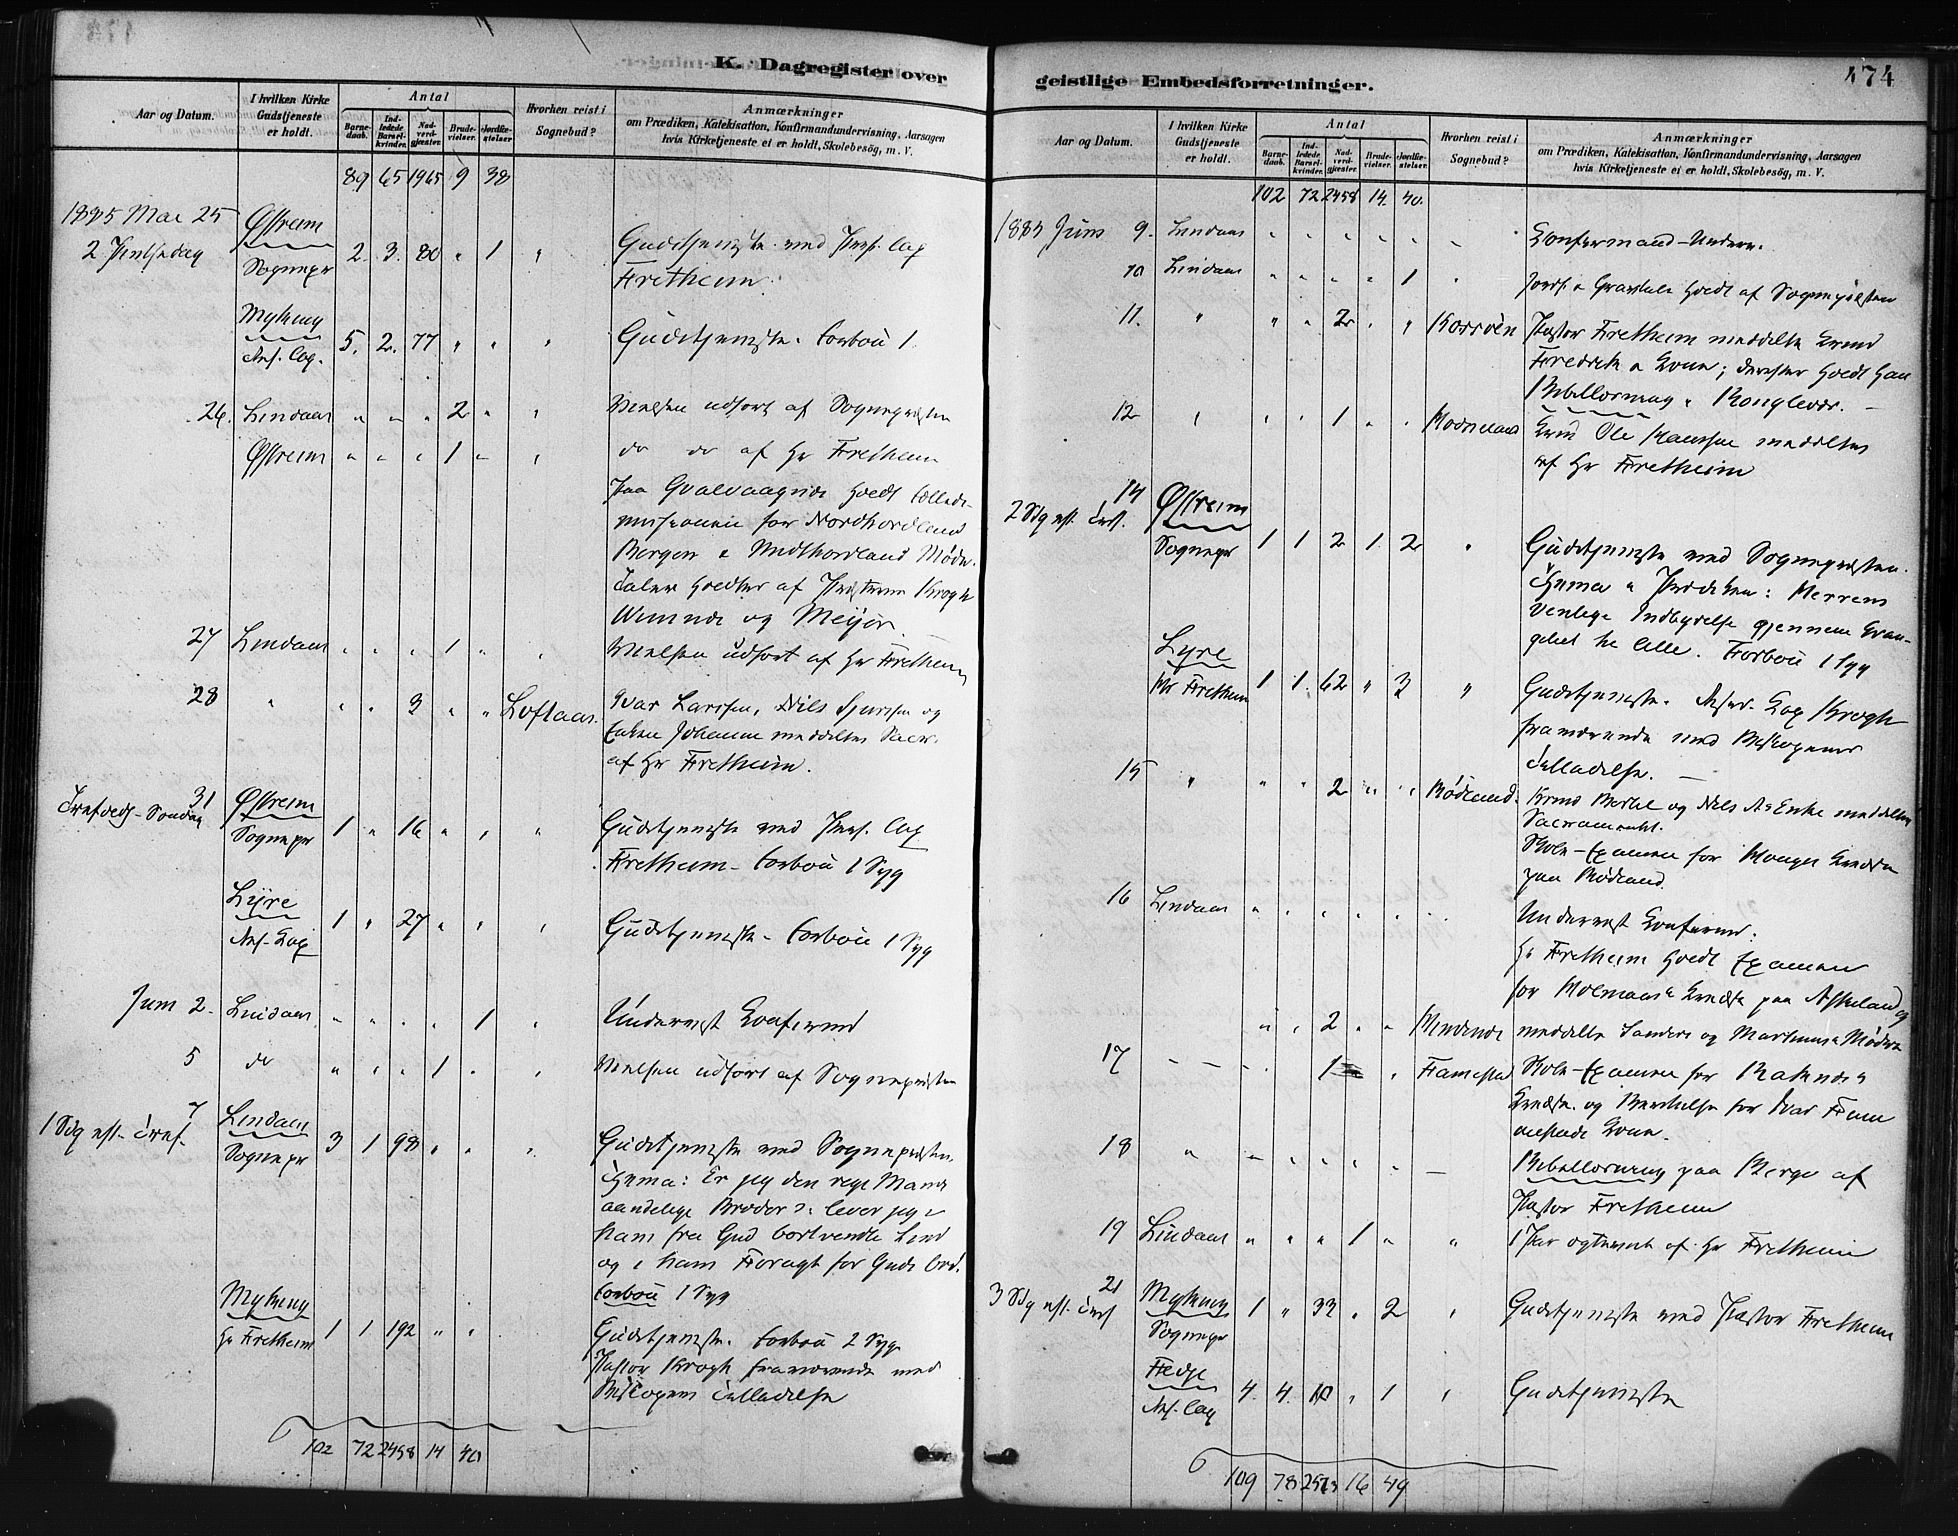 K. Dagregister over
Aar og Datum.
I hvilken Kirke Gudstjeneste er holdt.
Antal
Barnedaab.
Indledede Barselkvinder.
Nadverdgjæster.
Brudevielser.
Jordfæstelser.
Hvorhen reist i Sognebud?
Anmærkninger
om Prædiken, Katekisation, Konfirmandundervisning, Aarsagen
hvis Kirketjeneste ei er holdt, Skolebesög, m. V.
89 65 1965 9 38
1885 Mai 25 Østreim
2 Pintsedag Sognepr 2. 3. 80 " 1 " Gudstjeneste ved Pers. Cap
Fretheim.
Myking
Pers. Cap. 5. 2. 77 " " " Gudstjeneste. Forbøn 1.
26. Lindaas " " " 2 " " Vielsen udført af Sognepresten
Østreim " " " 1 " " do do af Hr Fretheim
Paa Hvalvaagnæs holdt
for Nordhordland
Bergen & Midthordland Møde.
Taler holdtes af Presterne Krogh
og Meyer.
27 Lindaas " " " 1 " " Vielsen udført af Hr Fretheim
28 " " " 3 " " Loftaas. Ivar Larssen, Nils Sjurssen og
Enken Johanne meddeltes Sacr.
af Hr Fretheim.
31 Østreim
Trefold. Søndag Sognepr 1 " 16 " " " Gudstjeneste ved Pers. Cap
Fretheim - Forbøn 1 Syg
Lyre
Pers. Cap 1 " 27 " " " Gudstjeneste - Forbøn 1 Syg
Juni 2. Lindaas " " " " 1 " Undervist Konfirmd
5 do " " " 1 " " Vielsen udført af Sognepresten
7 Lindaas
1 Sdg eft. Tref. Sognepr 3 1 98 " " " Gudstjeneste ved Sognepresten.
Thema: Er jeg den rige Mands
aandelige Broder: lever jeg i
hans fra Gud bortvendte Sind
og i hans Foragt for Guds Ord.
Forbøn 1 Syg
Myking
Hr Fretheim 1 1 192 " " " Gudstjeneste. Forbøn 2 Syge
Pastor Krogh fraværende med
Biskopens Tilladelse
102 72 2458 14 40
geistlige Embedsforretninger.
474
Aar og Datum.
I hvilken Kirke Gudstjeneste er holdt.
Antal
Barnedaab.
Indledede Barselkvinder.
Nadverdgjæster.
Brudevielser.
Jordfæstelser.
Hvorhen reist i Sognebud?
Anmærkninger
om Prædiken, Katekisation, Konfirmandundervisning, Aarsagen
hvis Kirketjeneste ei er holdt, Skolebesög, m. V.
102 72 2458 14. 40.
1885 Juni 9. Lindaas " " " " " " Konfirmand-Underv.
10 Lindaas " " " " 1 " Jordf. & Gravtale holdt af Sognepresten
11. " " " 2 " " Pastor Fretheim meddelte
Fredrik & Kone; derefter holdt han
Bibellæsning
12 " " " 1 " " Ole Hanssen meddeltes
af Hr Fretheim
14 Østreim
2 Sdg eft. Tref. Sognepr 1 1 2 1 2 " Gudstjeneste ved Sognepresten.
Thema & Prædiken: Herrens
venlige Indbydelse gjennem Evan-
geliet til Alle. Forbøn 1 Syg
Lyre
Hr Fretheim 1 1. 62 " 3 " Gudstjeneste. Pers. Cap Krogh
fraværende med Biskopens
Tilladelse.
15 " " " 2 " " Mødland. og Nils Enke meddeltes
Sacramentet.
Skole-Examen for Monger Kreds
paa Mødland.
16 Lindaas " " " " " " Undervist Konfirmd.
Hr Fretheim holdt Examen
for Kreds paa Askeland og
" " 2 " " meddelte og
17 - - - 1 " Framestad Skole-Examen for
Kreds. og for Ivar Fram
Kone.
18 " - " " " " - Bibellæsning paa Berge af
Pastor Fretheim
19 Lindaas " " " 1 " " 1 Par ægteviet af Hr Fretheim
21 Myking
3 Sdg eft. Tref Sognepr 1 " 33 " 2 " Gudstjeneste ved Pastor Fretheim
Fedje
Pers. Cap 4. 4. 10 " 1 " Gudstjeneste
109 78 2573 16 49